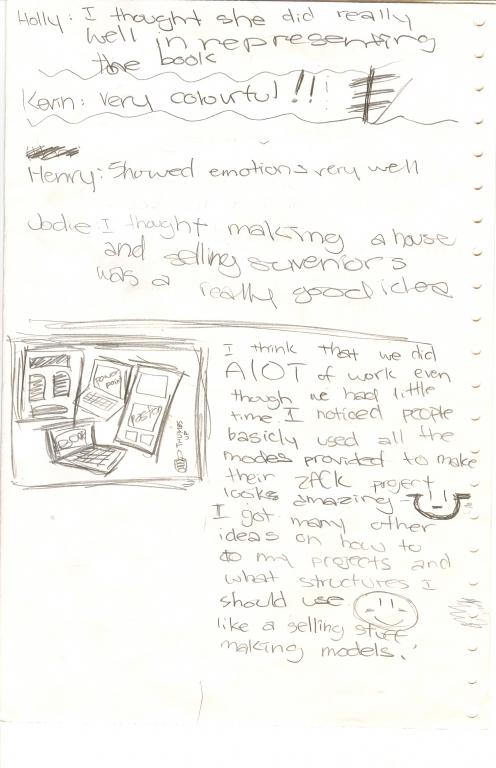 Holly: I thought she did really
well in representing
the book
Kevin: very colourful!!!
Henry: Showed emotions very well
Jodie: I thought making a house
and selling suveniors
was a really good idea
power
point
I think that we did
A lOT of work even
though we had little
time. I noticed people
basicly used all the
modes provided to make
their ZACK project
looks amazing
I got many other
ideas on how to
do my projects and
what structures I
should use
like a selling stuff
making models.